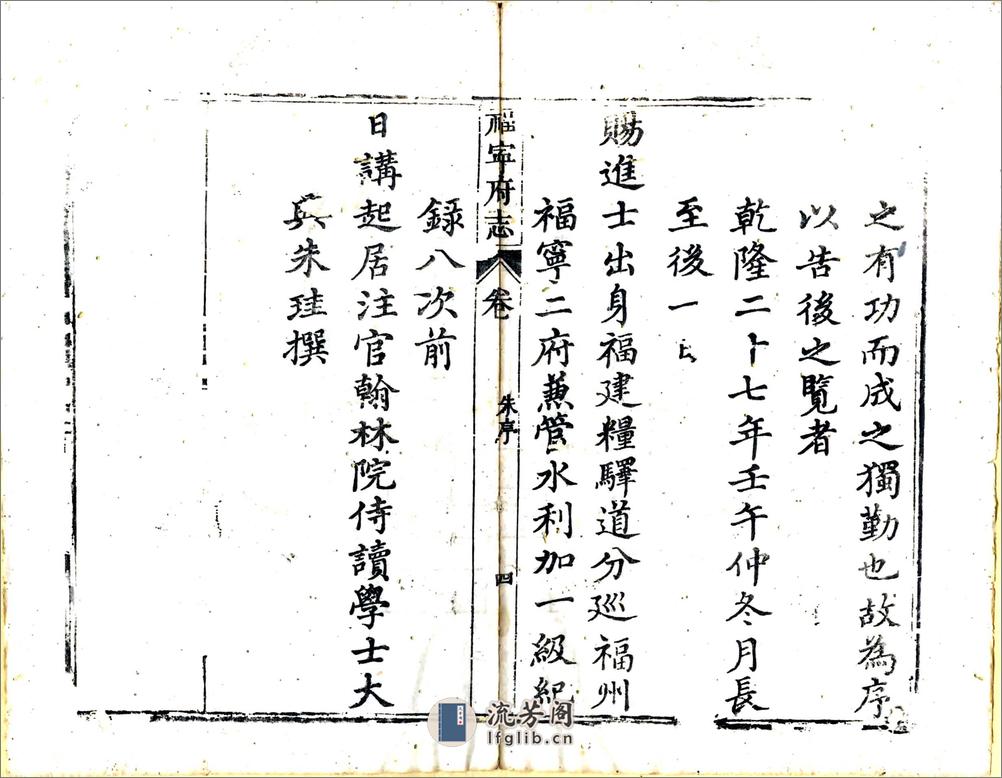 之有功而成之獨勤也故為序
以告後之覽者
乾隆二十七年壬午仲冬月長
至後一日
賜進士出身福建糧驛道分廵福州
福寧二府兼管水利加一級紀
福寧府志
卷
朱序
四
錄八次前
日講起居注官翰林院侍讀學士大
興朱珪撰
流芳阁
lfglib.cn